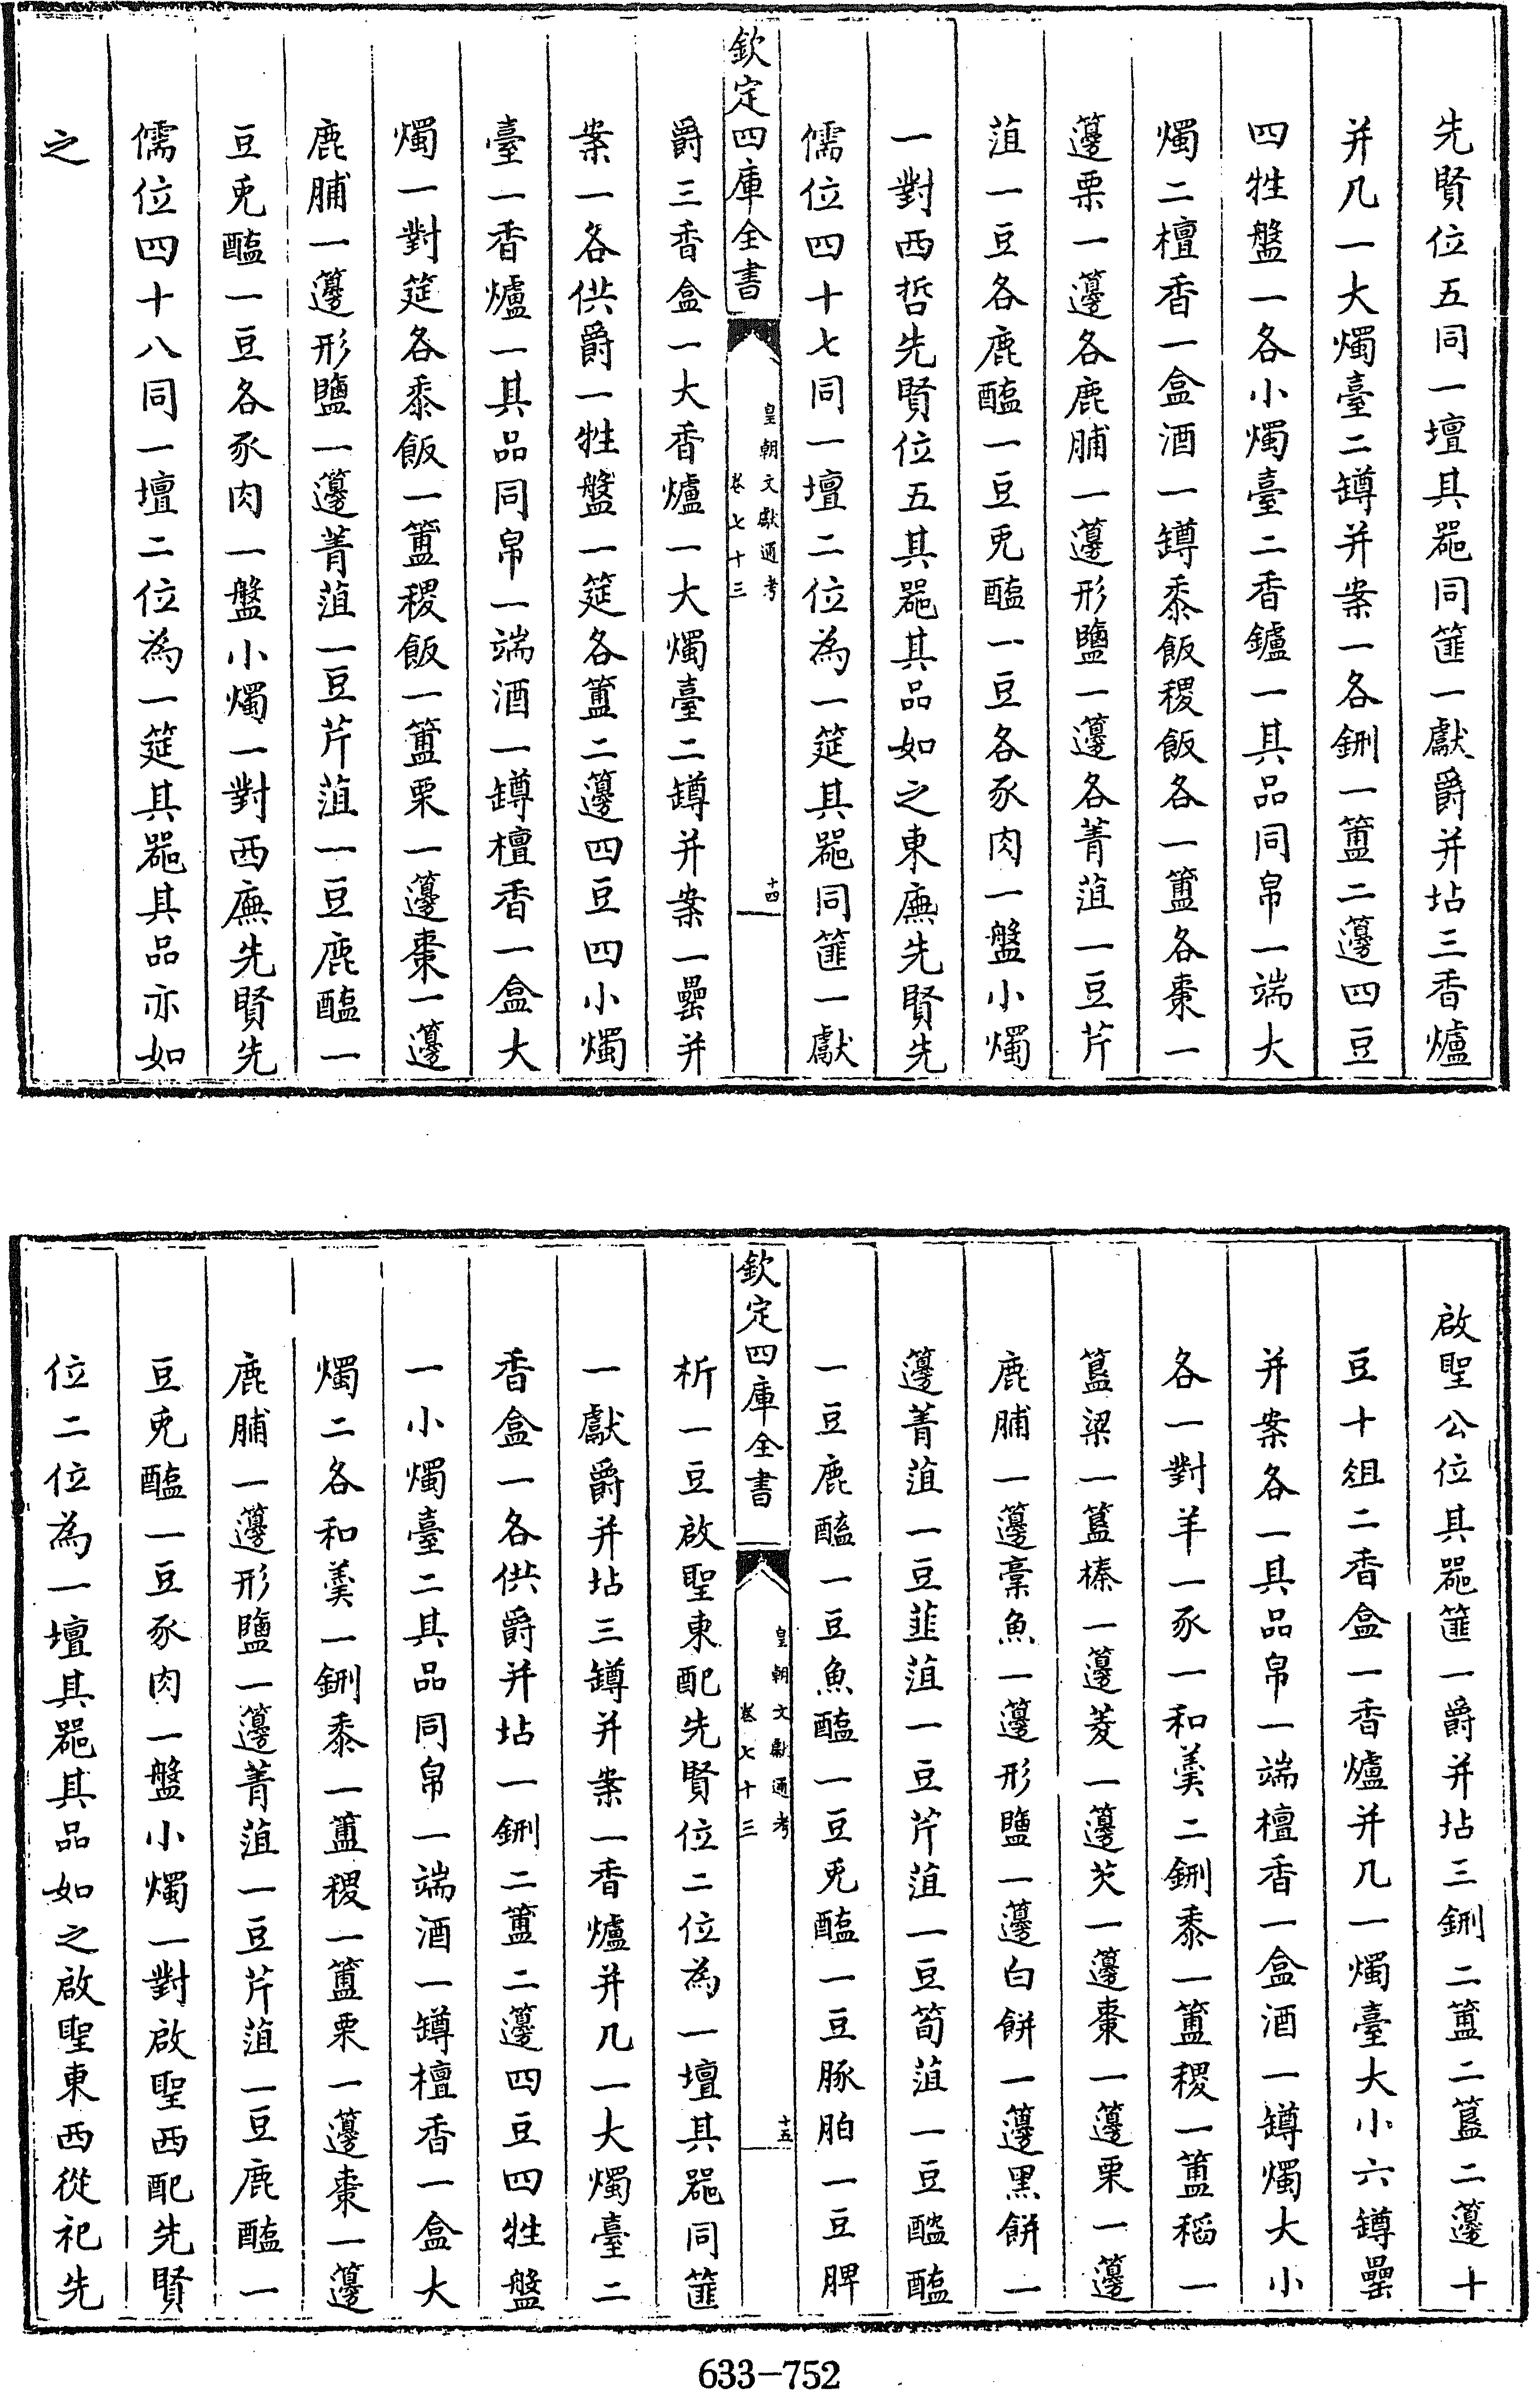 先賢位五同一壇其器同篚一獻爵并坫三香爐
并几一大燭臺二罇并案一各鉶一簠二籩四豆
四牲盤一各小燭臺二香鑪一其品同帛一端大
燭二檀香一盒酒一罇黍飯稷飯各一簠各棗一
籩栗一籩各鹿脯一籩形鹽一籩各菁菹一豆芹
菹一豆各鹿醢一豆兎醢一豆各豕肉一盤小燭
一對西哲先賢位五其器其品如之東廡先賢先
儒位四十七同一壇二位為一筵其器同篚一獻
欽定四庫全書
皇朝文獻通考
卷七十三
十四
爵三香盒一大香爐一大燭臺二罇并案一罍并
案一各供爵一牲盤一筵各簠二籩四豆四小燭
臺一香爐一其品同帛一端酒一罇檀香一盒大
燭一對筵各黍飯一簠稷飯一簠栗一籩棗一籩
鹿脯一籩形鹽一籩菁菹一豆芹菹一豆鹿醢一
豆兎醢一豆各豕肉一盤小燭一對西廡先賢先
儒位四十八同一壇二位為一筵其器其品亦如
之
啟聖公位其器篚一爵并坫三鉶二簠二簋二籩十
豆十俎二香盒一香爐并几一燭臺大小六罇罍
并案各一其品帛一端檀香一盒酒一罇燭大小
各一對羊一豕一和羹二鉶黍一簠稷一簠稻一
簋粱一簋榛一籩菱一籩芡一籩棗一籩栗一籩
鹿脯一籩藁魚一籩形鹽一籩白餅一籩黑餅一
籩菁菹一豆韮菹一豆芹菹一豆筍菹一豆醓醢
一豆鹿醢一豆魚醢一豆兎醢一豆豚胉一豆脾
欽定四庫全書
皇朝文獻通考
卷七十三
十五
析一豆啟聖東配先賢位二位為一壇其器同篚
一獻爵并坫三罇并案一香爐并几一大燭臺二
香盒一各供爵并坫一鉶二簠二籩四豆四牲盤
一小燭臺二其品同帛一端酒一罇檀香一盒大
燭二各和羹一鉶黍一簠稷一簠栗一籩棗一籩
鹿脯一籩形鹽一籩菁菹一豆芹菹一豆鹿醢一
豆兎醢一豆豕肉一盤小燭一對啟聖西配先賢
位二位為一壇其器其品如之啟聖東西從祀先
633-752